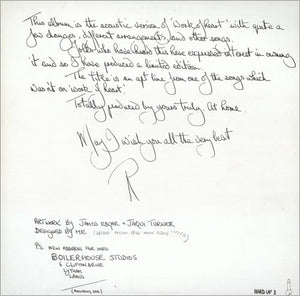 This album is the acoustic version of 'Work of heart' with quite a
few changes, different arrangements, and other songs.
Folks who have heard this have expressed interest in owning
it and so I have produced a limited edition.
The title is an apt line from one of the songs which
wasn't on 'work of heart'.
Totally produced by yours truly. At home.
May I wish you all the very best
R
ARTWORK BY JAMES EDGAR + JAQUI TURNER
DESIGNED BY ME
PS. NEW ADDRESS FOR INFO
BOILERHOUSE STUDIOS
6 CLIFTON DRIVE
LYTHAM
LANCS.
HARD UP 1